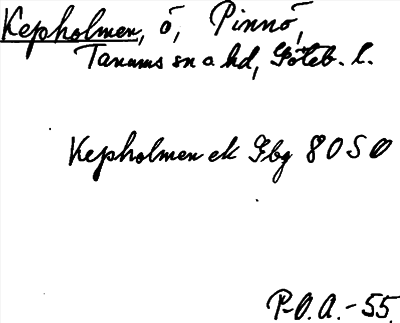 Kepholmen, ö, Pinnö,
Tanums sn o hd, Göteb. l.
Kepholmen ek Gbg 8050
P-O.A.-55.